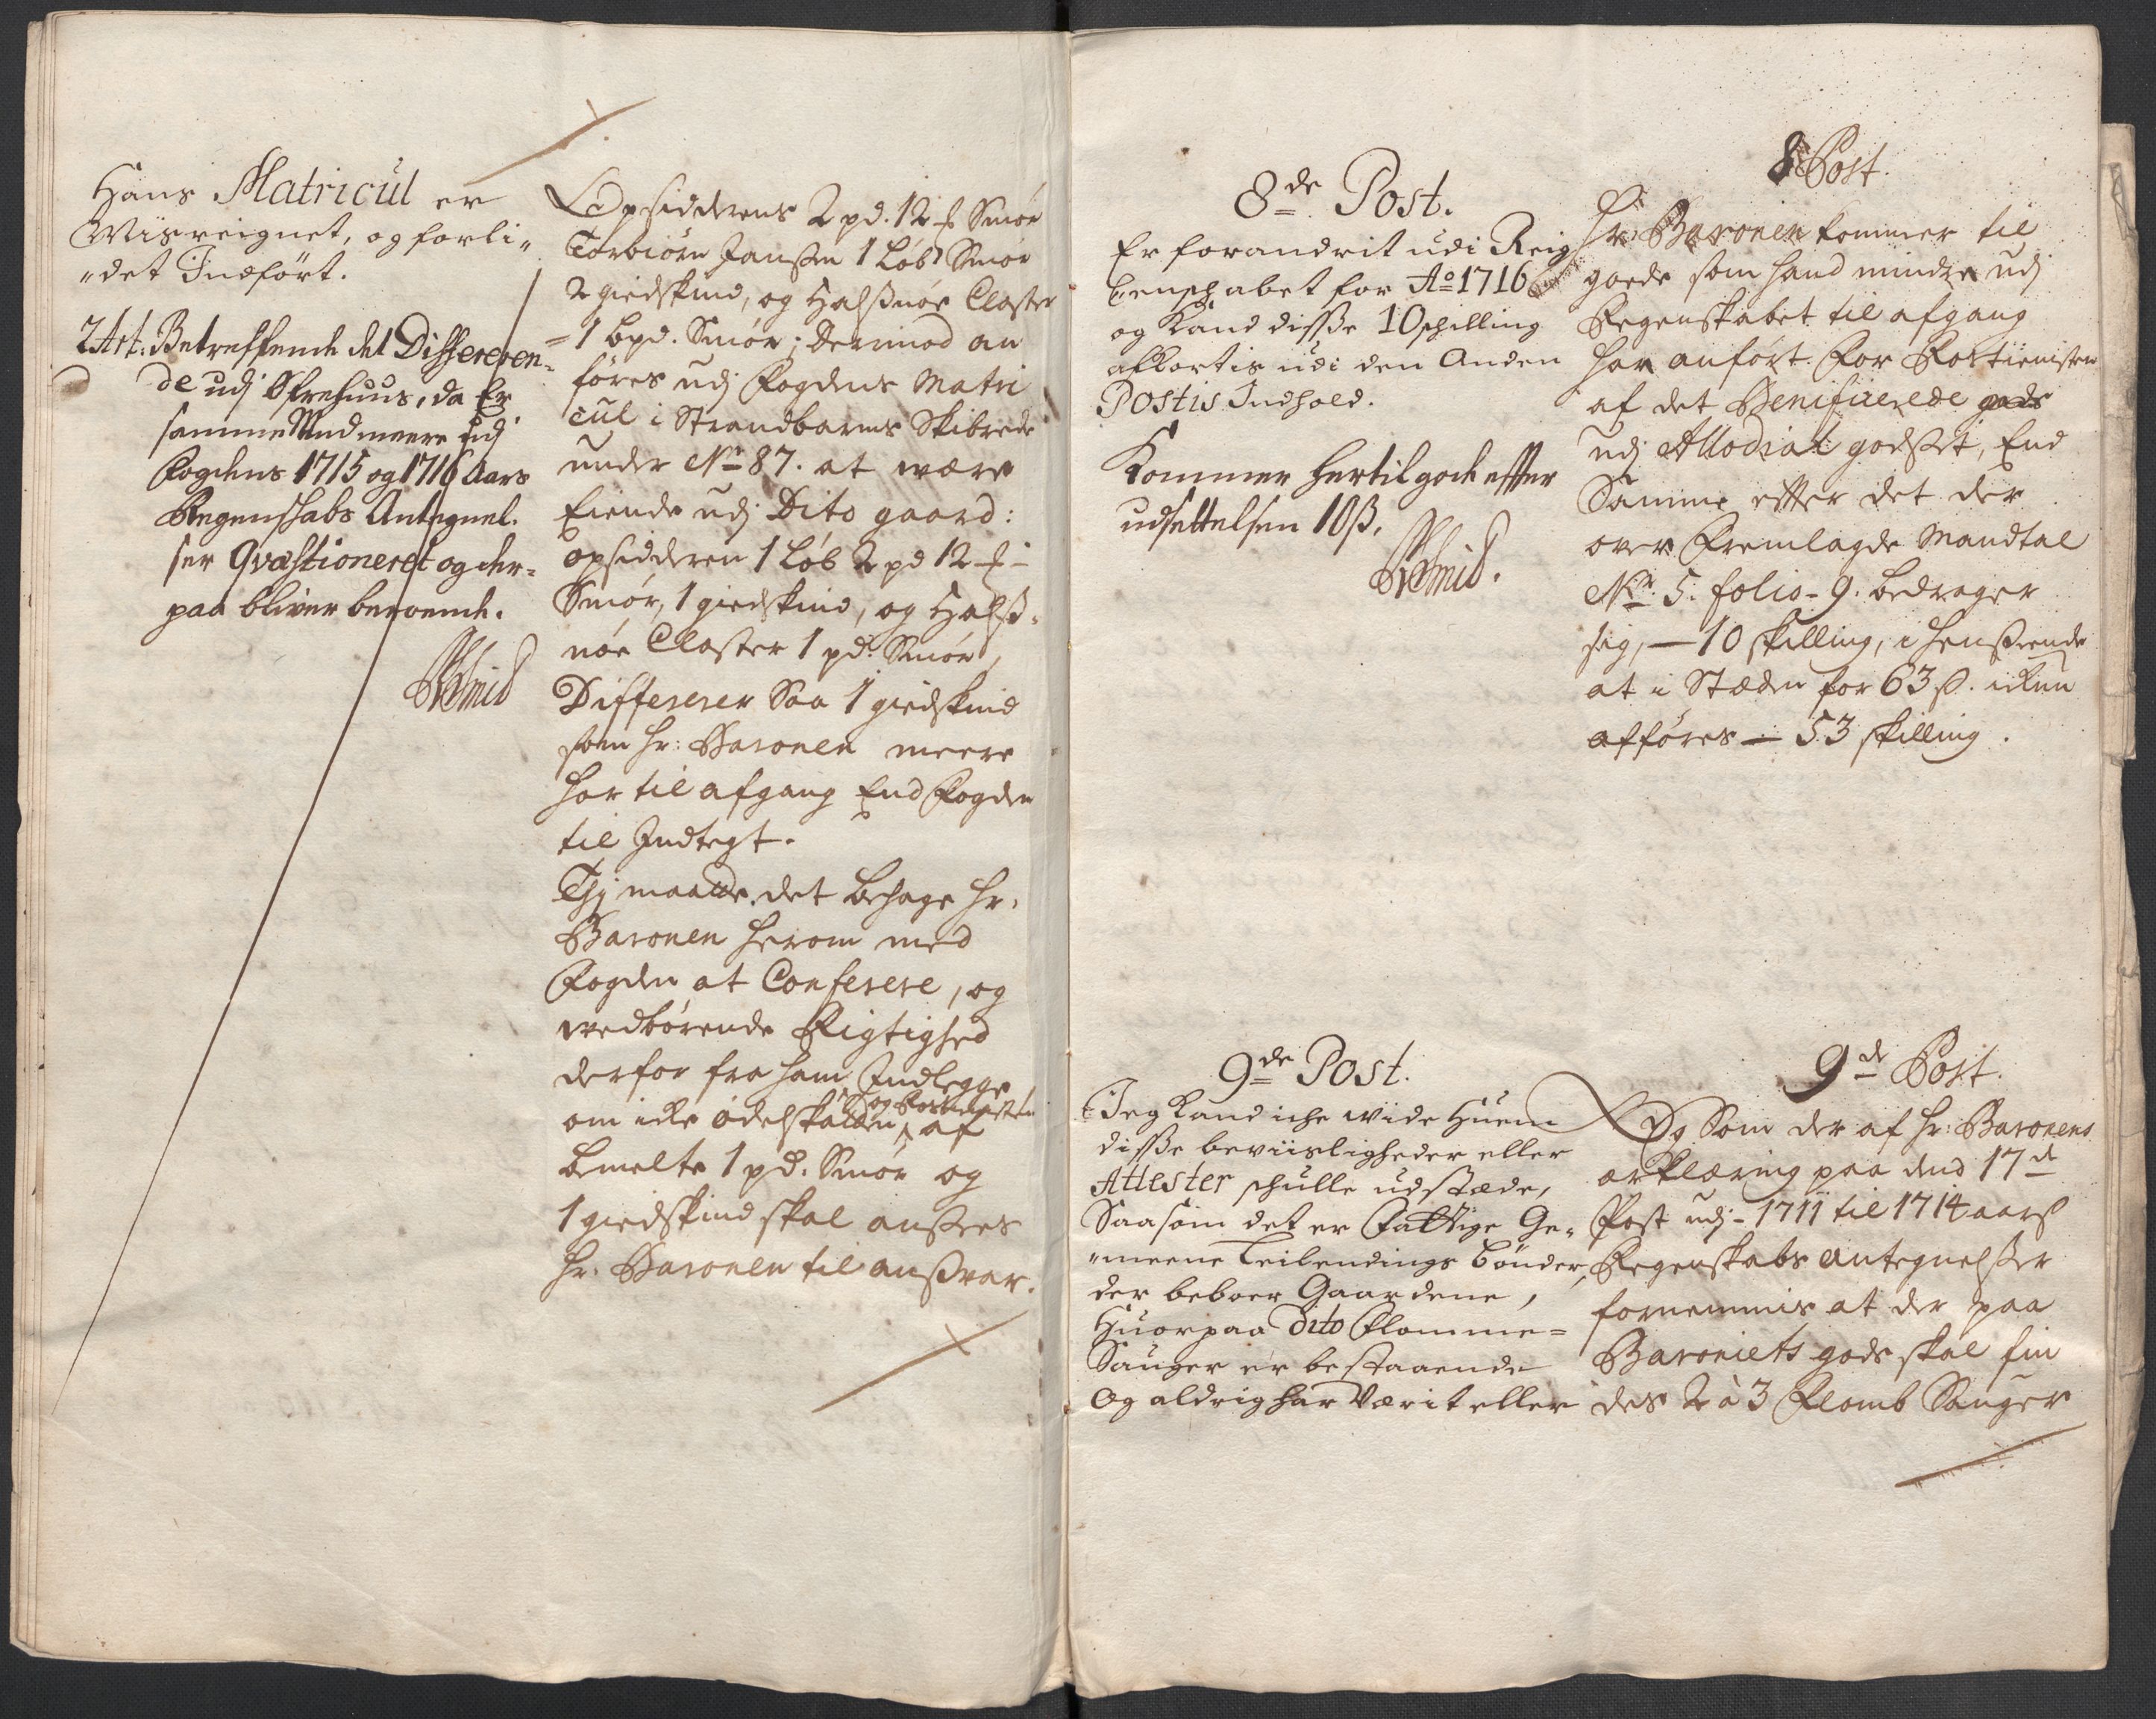 Hans Matricul er
Misreignet, og forli„
„det Indført.
2 Art: Betreffende det Differeren„
de udj Ofrehuus, da Er
samme Med meere udj
Fogdens 1715 og 1716 Aars
Regenschabs Antegnel„
ser Qvæstioneret og der„
paa bliver beroende.
Schmid
Opsidderens 2 pd. 12 ℔ Smør
Torbiørn Janssen 1 Løb Smør
2 giedskind, og Halsnøe Closter
1 Bpd. Smør; Derimod an
føres udj Fogdens Matri
cul i Strandbarms Skibrede
under No 87. at være
Eiende udj Dito gaard:
opsidderen 1 Løb 2 pd 12 ℔
Smør, 1 giedskind, og Halsz„
nøe Closter 1 pd. Smør,
Differerer Saa 1 giedskind
som Hr: Baronen meere
har til afgang End Fogden
til Indtegt.
Thj maatte det behage Hr.
Baronen herom med
Fogden at Conferere, og
wedbørende Rigtighed
derfor fra ham Indlegge
om icke Odelskatten og Rostienisten af
bemelte 1 pd. Smør og
1 giedskind skal ansees
Hr. Baronen til ansvar.
8de Post.
Er forandrit udi Reig
Censchabet for Ao 1716
og Kand disse 10 schilling
afkortis udi den Anden
Postis Indhold.
Kommer hertil gode effter
udsettelsen 10 ß.
Schmid.
8 Post.
Hr. Baronen kommer til
goede som hand mindre udj
Regenskabet til afgang
har anført For Rostienisten
af det Benificerede gods
udj Allodial godset, End
Samme efter det der
over Fremlagde Mandtal
No. 5. folio 9. bedrager
sig, — 10 skilling, i henseende
at i Stæden for 63 ß. ickun
afføres — 53 skilling.
9de Post.
Jeg Kand iche wiide Huem
disse beviisligheder eller
Attester schulle udstæde,
Saasom det er Fattige Ge„
„meene Leilendings bønder,
der beboer Gaardene,
Huorpaa Dito Flomme„
Sauger er bestaaende
Og aldrig har Værit eller
9de Post.
Og Som der af Hr: Baronens
erklæring paa dend 17de
Post udj 1711 til 1714 aars
Regenskabs antegnelsser
fornemmis at der paa
Baroniets gods skal fin
des 2 à 3 Flomb Sauger